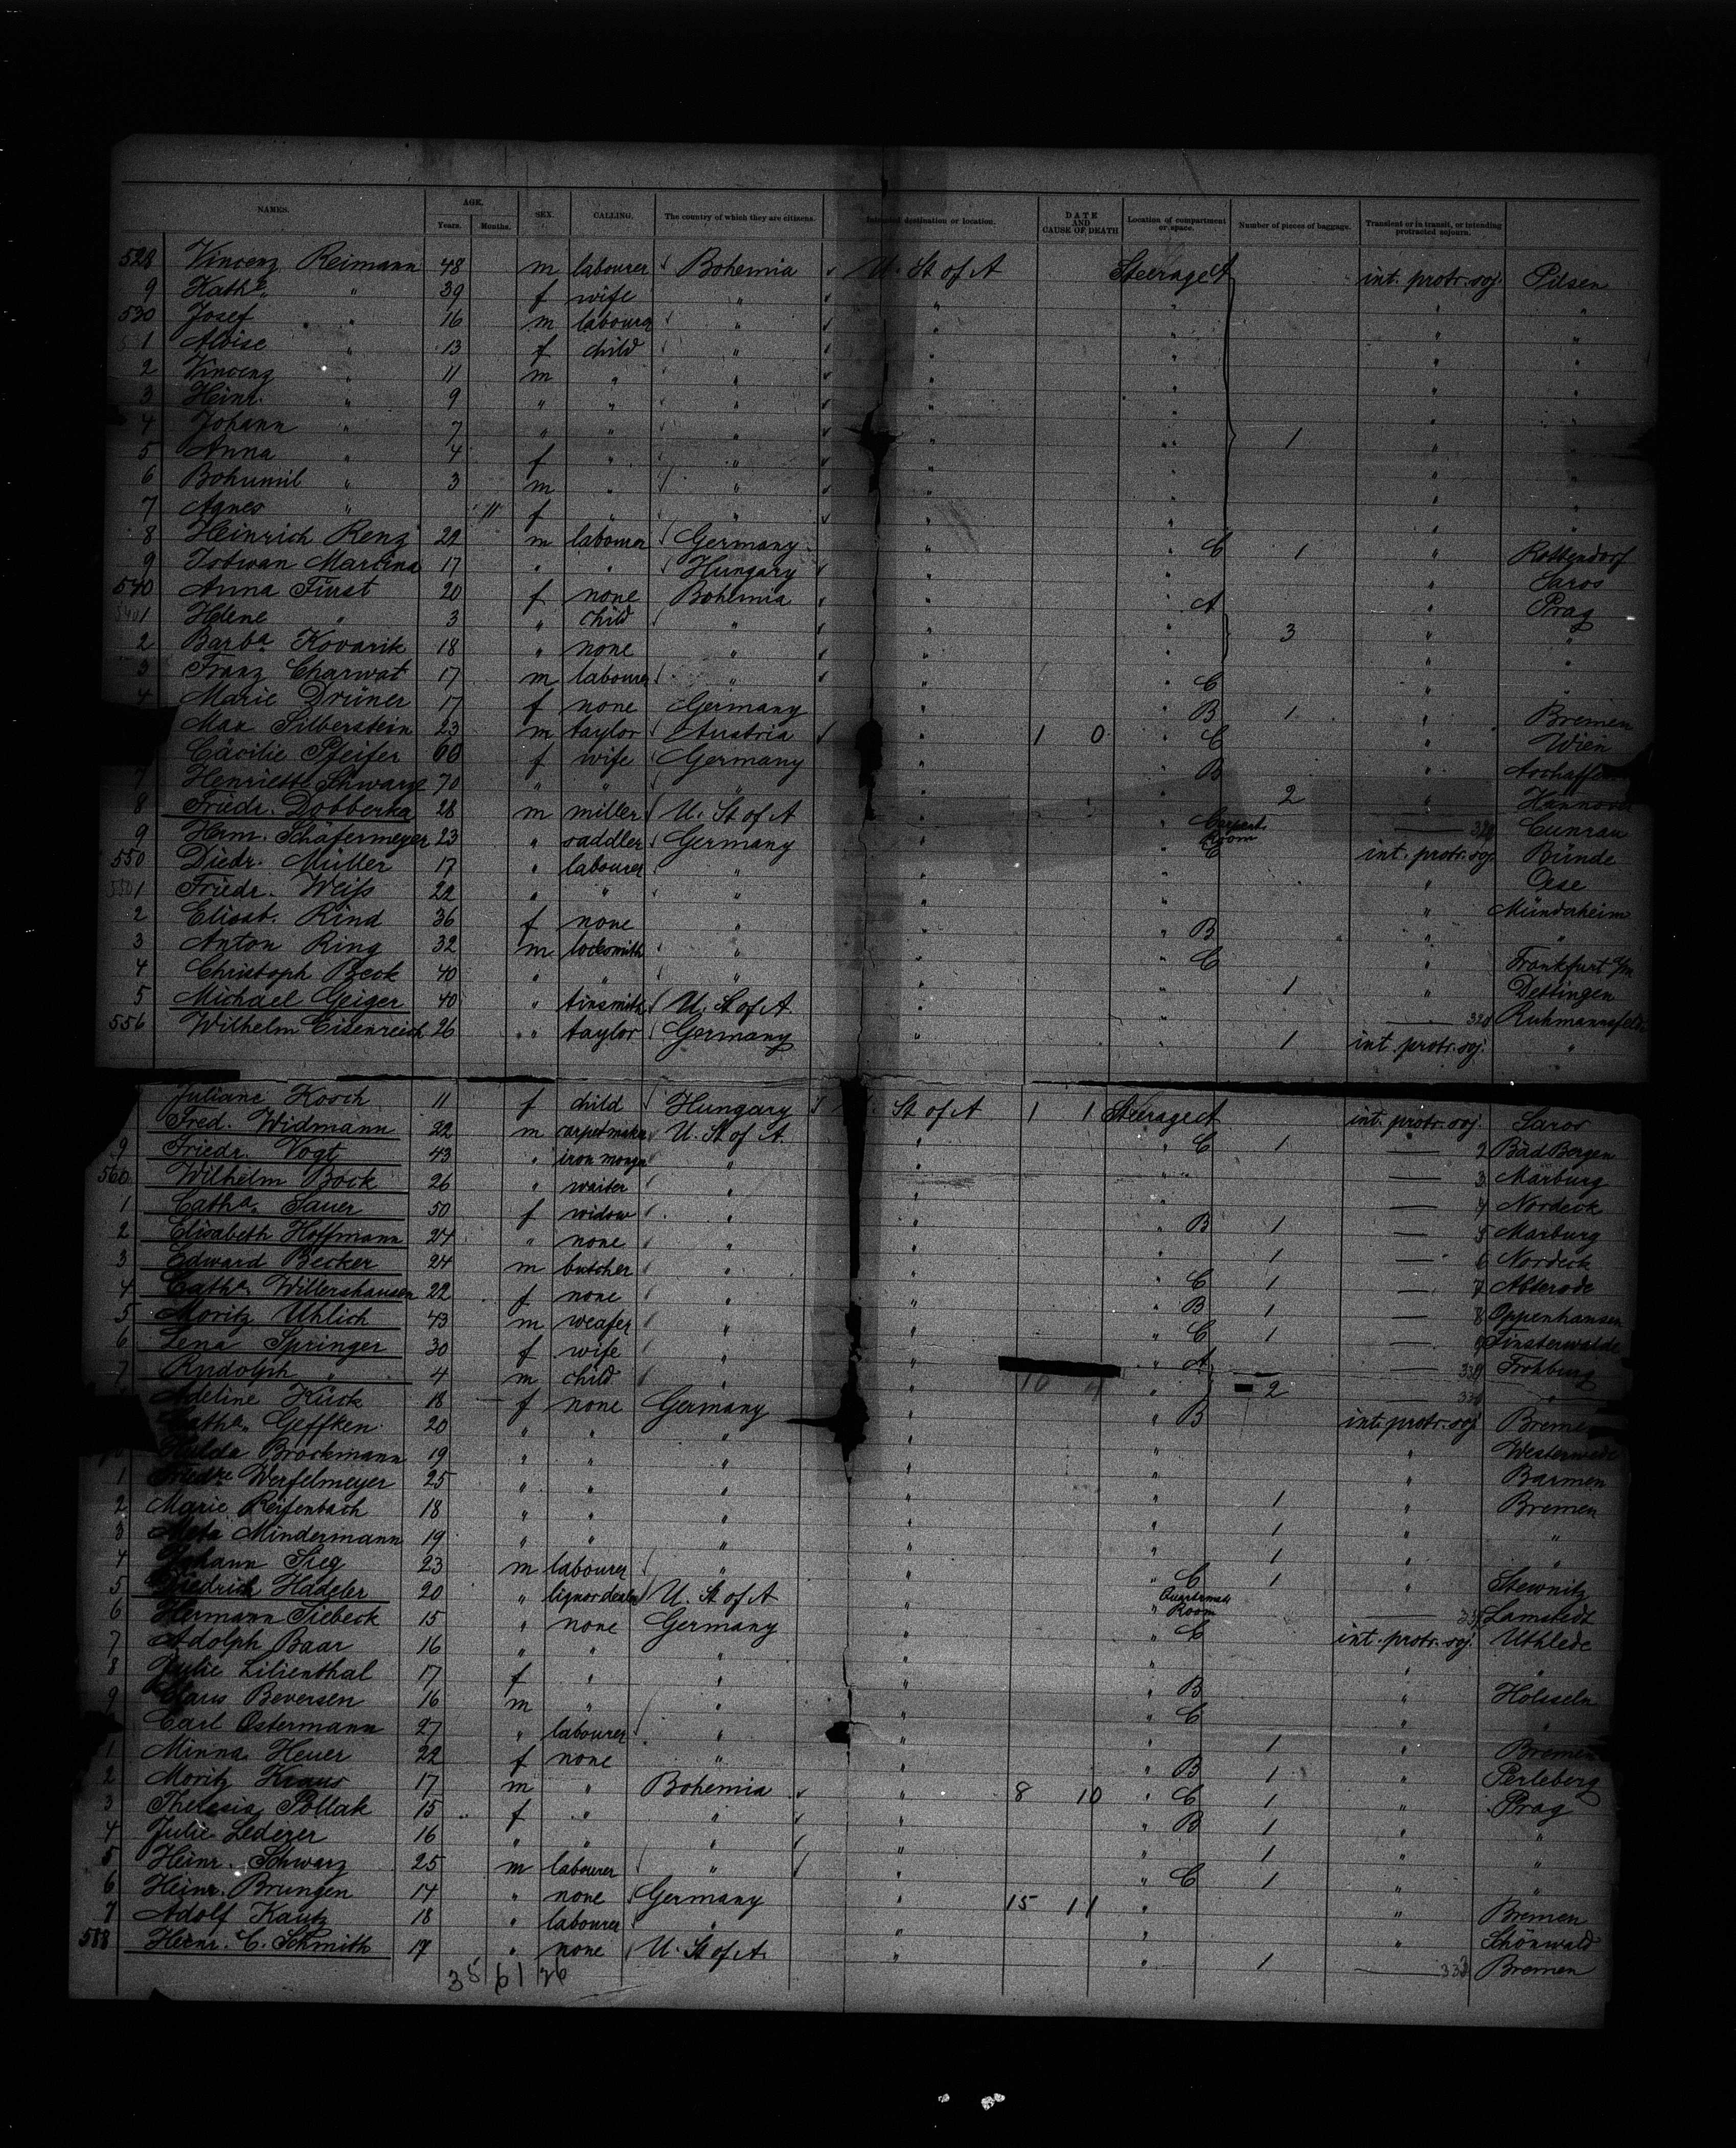 NAMES. AGE. Years. Months. SEX. CALLING. The country of which they are citizens. Intended destination or location. DATE AND CAUSE OF DEATH Location of compartment or space. Number of pieces of baggage. Transient or in transit, or intending protracted sojourn.
528 Vincenz Reimann 48 m labourer Bohemia U. St of A Steerage A int. protr. soj. Pilsen
9 Kathe " 39 f wife " " " " "
530 Josef " 16 m labourer " " " " "
1 Aloise " 13 f child " " " " "
2 Vincenz " 11 m " " " " " "
3 Heinr. " 9 " " " " " " "
4 Johann " 7 " " " " " 1 " "
5 Anna " 4 f " " " " " "
6 Bohumil " 3 m " " " " " "
7 Agnes " 11 f " " " " " "
8 Heinrich Renz 22 m labourer Germany " " C 1 " Rottendorf
9 Martina 17 " " Hungary " " " Saros
540 Anna Fürst 20 f none Bohemia " " A " Prag
1 Helene " 3 " child " " " 3 " "
2 Barba Kovarik 18 " none " " " " "
3 Franz Charwat 17 m labourer " " " C " "
4 Marie Drüner 17 f none Germany " " B 1 " Bremen
Max Silberstein 23 m taylor Austria " 1 0 " C " Wien
Cäcilie Pfeifer 66 f wife Germany " " B "
7 Henriette Schwarz 70 " " " " " 2 "
8 Friedr. Dobberka 28 m miller U. St of A " " Room Cunrau
9 Herm. Schäfermeyer 23 " saddler Germany " " C int. protr. soj. Bünde
550 Diedr. Müller 17 " labourer " " " " Oese
1 Friedr. Weiss 22 " " " " " "
2 Elisab. Rind 36 f none " " " B " "
3 Anton Ring 32 m locksmith " " " C " Frankfurt a/m
4 Christoph Beck 40 " " " " " 1 " Dettingen
5 Michael Geiger 40 " tinsmith U. St of A " " Ruhmannsfelde
556 Wilhelm Eisenreich 26 " taylor Germany " " 1 int. protr. soj. "
Juliane Kooch 11 f child Hungary St of A 1 1 Steerage A int. protr. soj. Saros
Fred. Widmann 22 m carpetmaker U. St of A " " C 1 2 Bad Bergen
9 Friedr. Vogt 43 " iron monger " " " " 3 Marburg
560 Wilhelm Bock 26 " waiter " " " 4 Nordeck
1 Catha. Sauer 50 f widow " " " B 1 5 Marburg
2 Elisabeth Hoffmann 24 " none " " " 1 6 Nordeck
3 Edward Becker 24 m butcher " " " C 1 7 Abterode
4 Catha. Willershausen 22 f none " " " B 1 8 Oppenhausen
5 Moritz Uhlich 43 m weafer " " " C 1 9 Finsterwalde
6 Lena Springer 30 f wife " " " A 330 Frohburg
7 Rudolph " 4 m child " " " 2 "
Adeline Kück 18 f none Germany " " B int. protr. soj. Bremen
Catha. Geffken 20 " " " " " "
Hulda Brockmann 19 " " " " " " Barmen
1 Werfelmeyer 25 " " " " " 1 " Bremen
2 Marie Reifenbach 18 " " " " " 1 " "
3 Meta Mindermann 19 " " " " " 1 " "
4 Johann Sieg 23 m labourer " " " C 1 " Stewnitz
5 Friedrich Hadeler 20 " liquor dealer U. St of A " " Room Lamstedt
6 Hermann Siebeck 15 " none Germany " " C int. protr. soj. Uthlede
7 Adolph Baar 16 " " " " " " "
8 Julie Lilienthal 17 f " " " " B "
9 Claus Beversen 16 m " " " " C " "
Carl Ostermann 27 " labourer " " 1 " Bremen
1 Minna Heuer 22 f none " " " B 1 " Perleberg
2 Moritz Kraus 17 m " Bohemia " 8 10 " C 1 " Prag
3 Theresia Pollak 15 f " " " " B 1 " "
4 Julie Lederer 16 " " " " " 1 " "
5 Heinr. Schwarz 25 m labourer " " " C 1 " "
6 Heinr. Brungen 14 " none Germany " 15 11 " " Bremen
7 Adolf Kautz 18 " labourer " " " " Schönwald
588 Heinr. C. Schmith 17 " none U. St of A. " " 1 Bremen
35 61 26